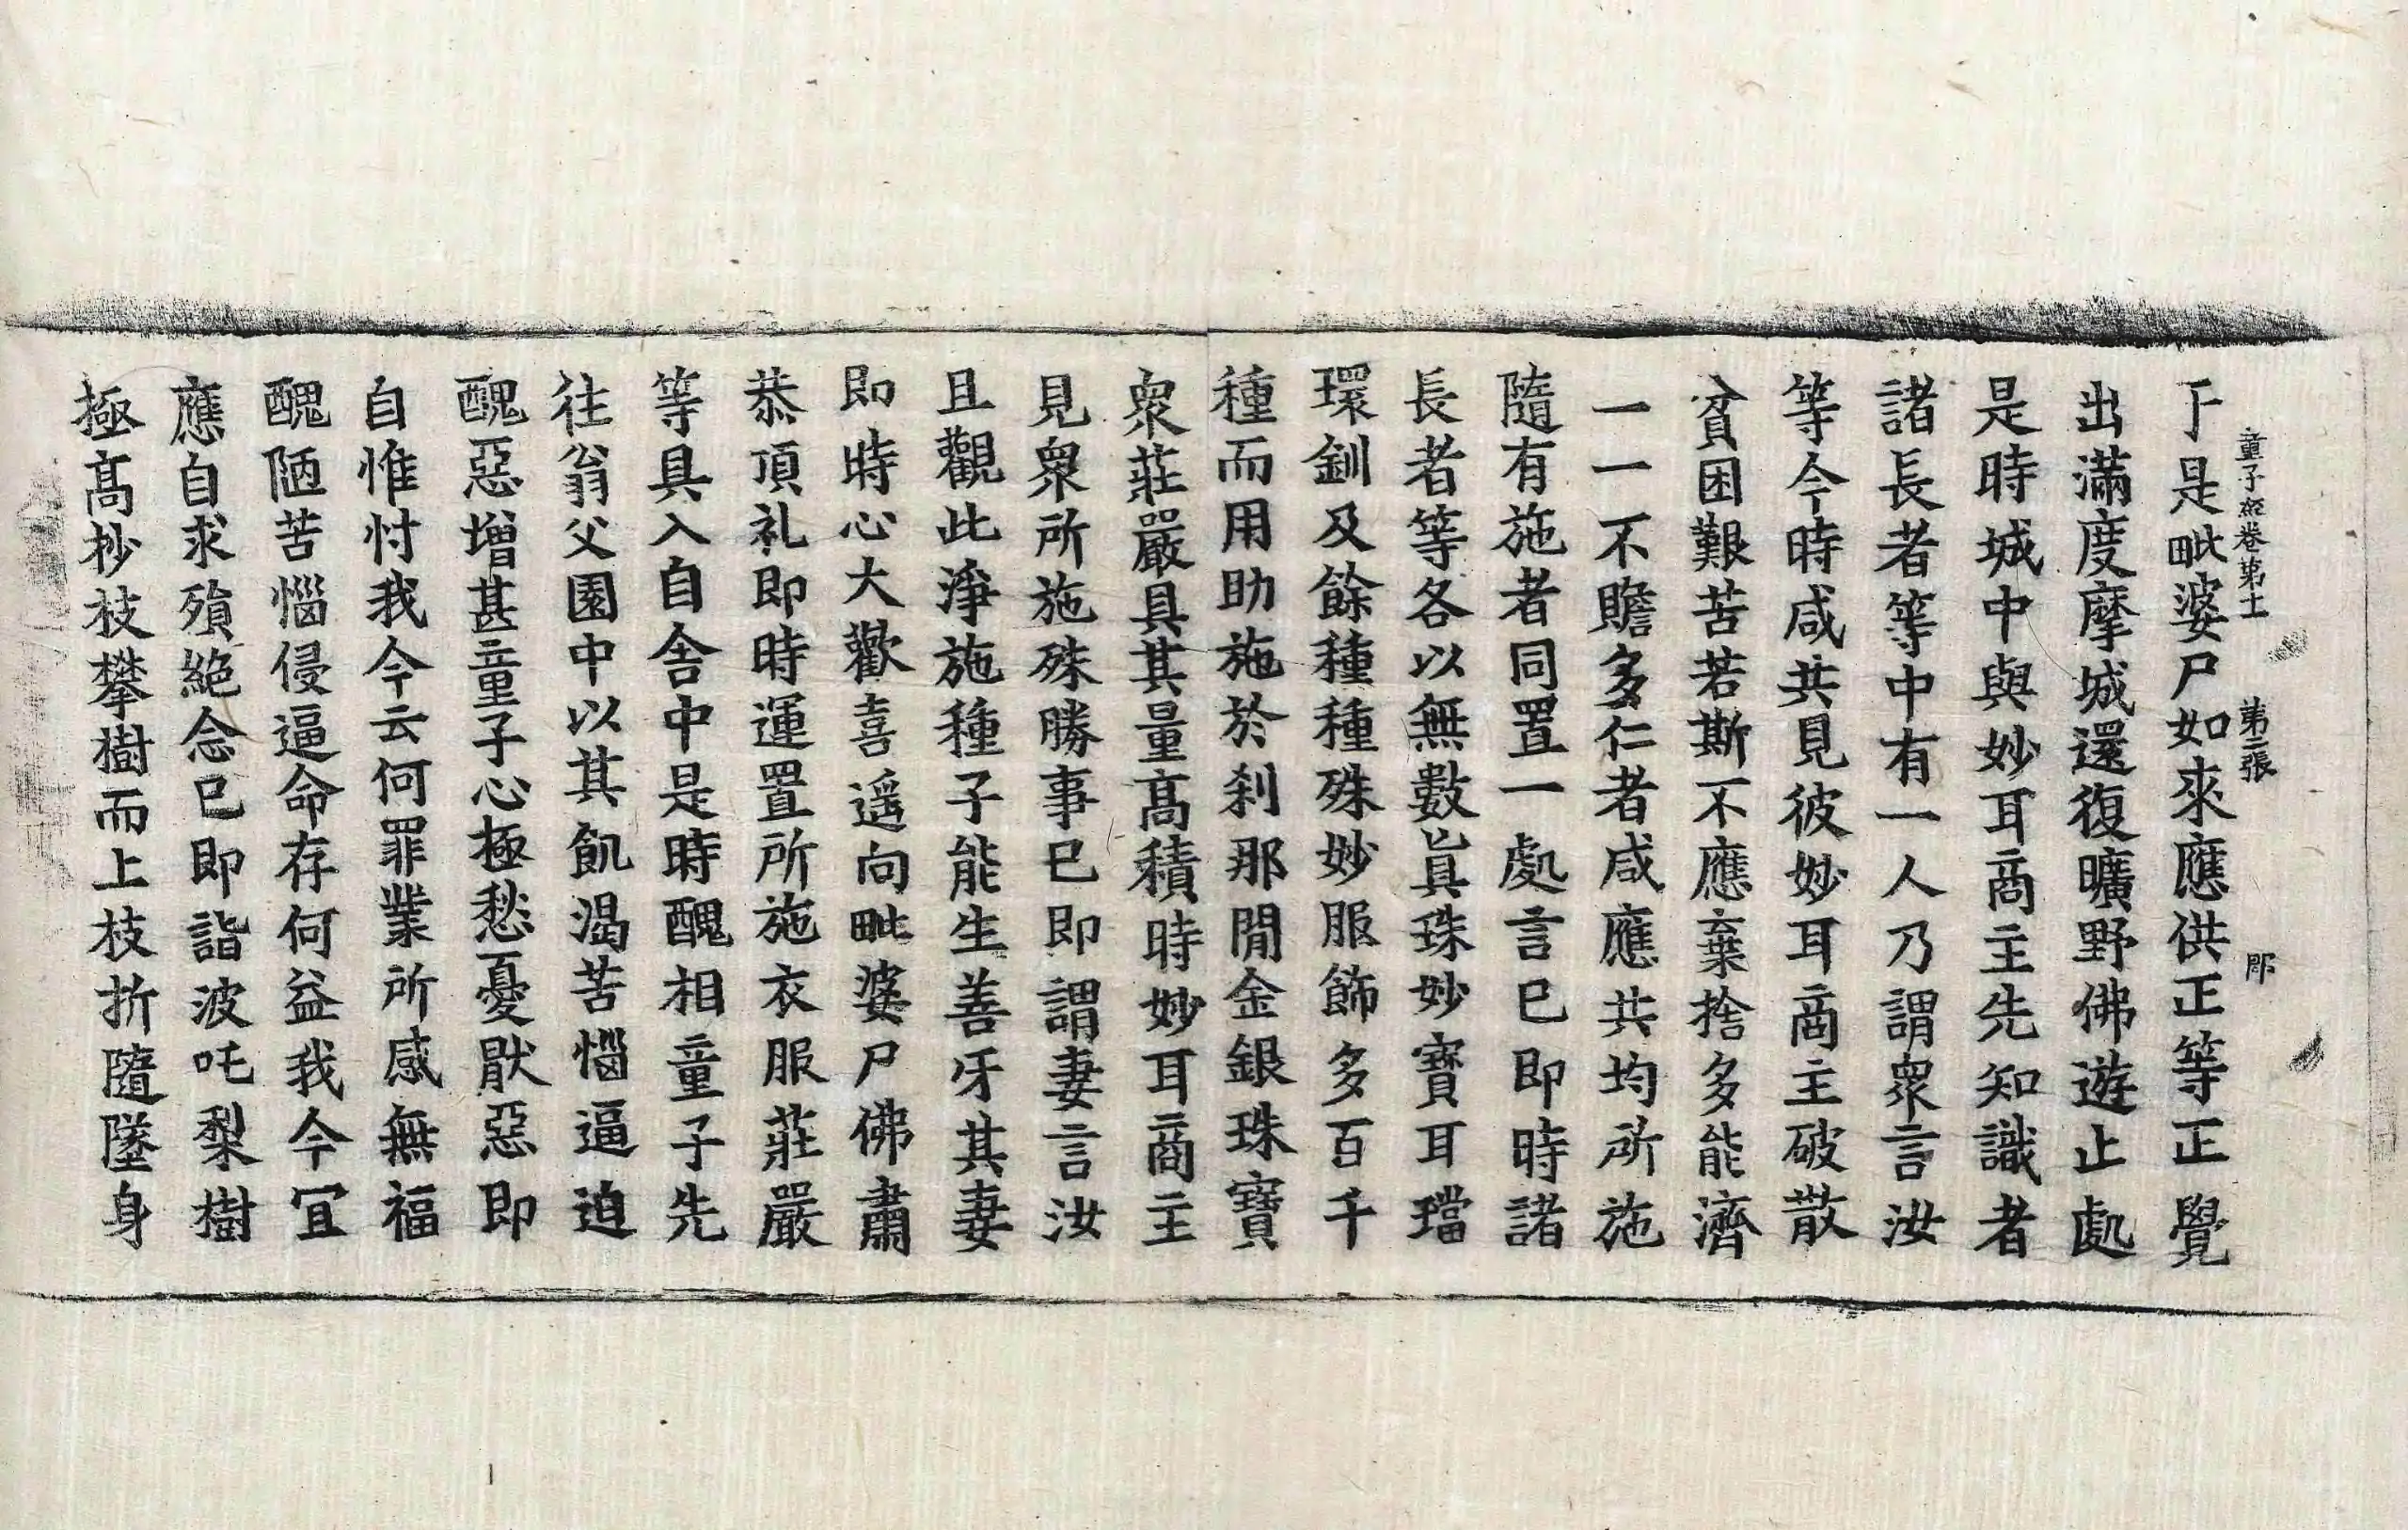 童子經卷第十一　第二張　郡
于是毗婆尸如來應供正等正覺
出滿度摩城還復曠野佛遊止處
是時城中與妙耳商主先知識者
諸長者等中有一人乃謂衆言汝
等今時咸共見彼妙耳商主破散
貧困艱苦若斯不應棄捨多能濟
一一不贍多仁者咸應共均所施
隨有施者同置一處言已即時諸
長者等各以無數眞珠妙寶耳璫
環釧及餘種種殊妙服飾多百千
種而用助施於刹那閒金銀珠寶
衆莊嚴具其量高積時妙耳商主
見衆所施殊勝事已即謂妻言汝
且觀此淨施種子能生善牙其妻
即時心大歡喜遥向毗婆尸佛肅
恭頂礼即時運置所施衣服莊嚴
等具入自舍中是時醜相童子先
往翁父園中以其飢渴苦惱逼迫
醜惡增甚童子心極愁憂猒惡即
自惟忖我今云何罪業所感無福
醜陋苦惱侵逼命存何益我今冝
應自求殞絶念已即詣波吒梨樹
極高杪枝攀樹而上枝折隨墜身